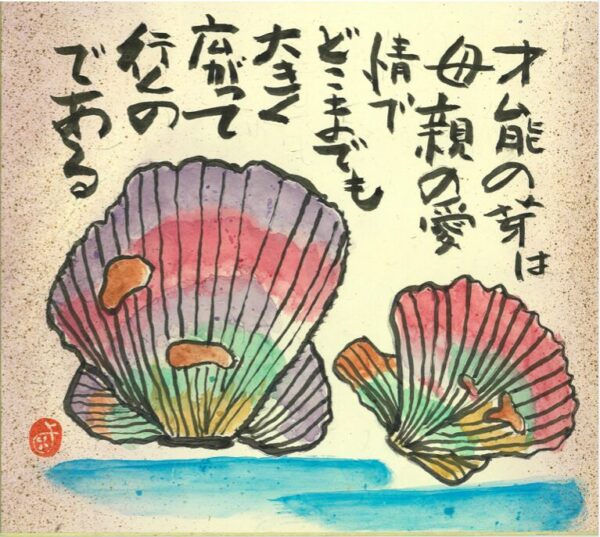 才能の芽は
母親の愛
情で
どこまでも
大きく
広がって
行くの
である